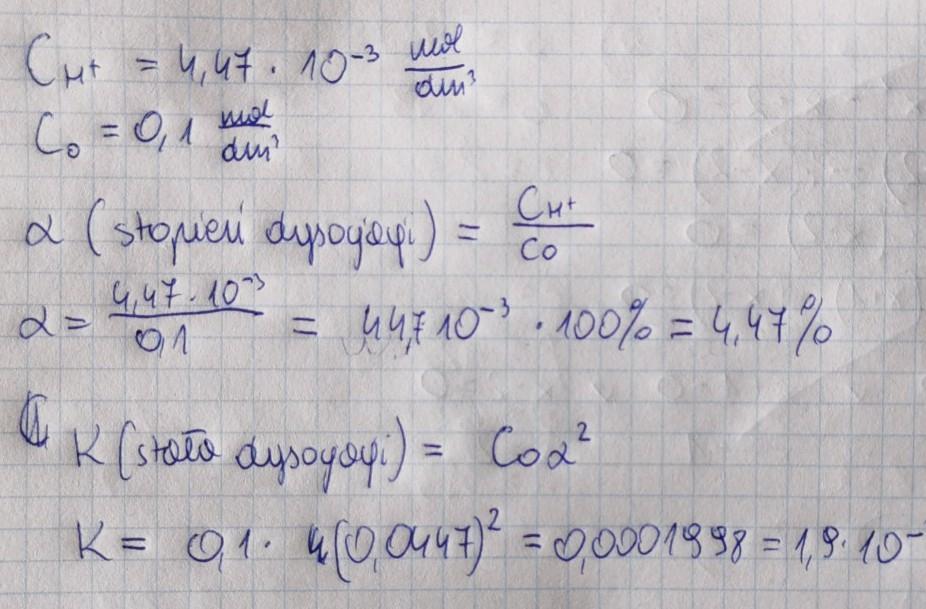 C_H+ = 4,47 · 10⁻³ mol/dm³
C₀ = 0,1 mol/dm³
α (stopień dysocjacji) = C_H+/C₀
α = 4,47 · 10⁻³/0,1 = 44,7 10⁻³ · 100% = 4,47%
K (stała dysocjacji) = C₀α²
K = 0,1 · (0,0447)² = 0,0001998 = 1,9 · 10⁻